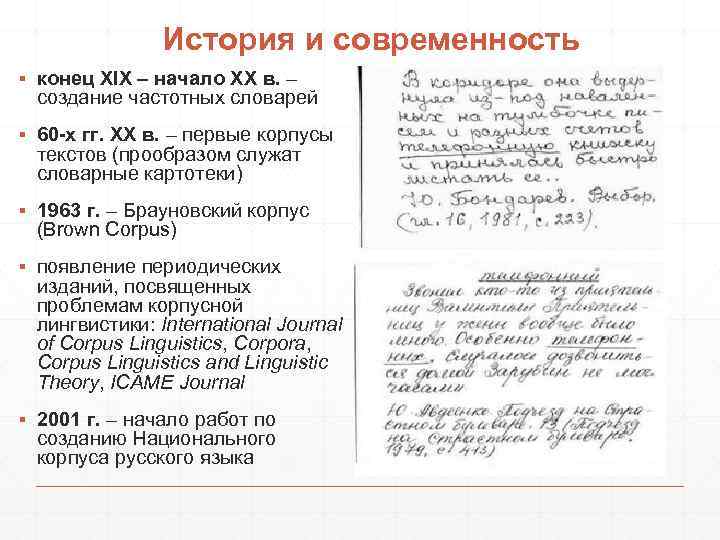 История и современность
▪ конец XIX – начало XX в. –
создание частотных словарей
▪ 60-х гг. XX в. – первые корпусы
текстов (прообразом служат
словарные картотеки)
▪ 1963 г. – Брауновский корпус
(Brown Corpus)
▪ появление периодических
изданий, посвященных
проблемам корпусной
лингвистики: International Journal
of Corpus Linguistics, Corpora,
Corpus Linguistics and Linguistic
Theory, ICAME Journal
▪ 2001 г. – начало работ по
созданию Национального
корпуса русского языка
В коридоре она выдер-
нула из-под навален-
ных на тумбочке пи-
сем и разных счетов
телефонную книжку
и принялась быстро
листать ее..
Ю. Бондарев. Выбор.
(гл. 16, 1981, с. 223).
телефонный
Звонил кто-то из приятель-
ниц Валентины. Приятель-
ниц у жены вообще было
много. Особенно телефон-
ных. Серьёзно дозвонить-
ся домой Зарубин не мог
часами
Ю. Авдеенко. Подъезд на Стра-
стном бульваре. 13 (Подъезд
на Страстном бульваре.
1979, с. 413)